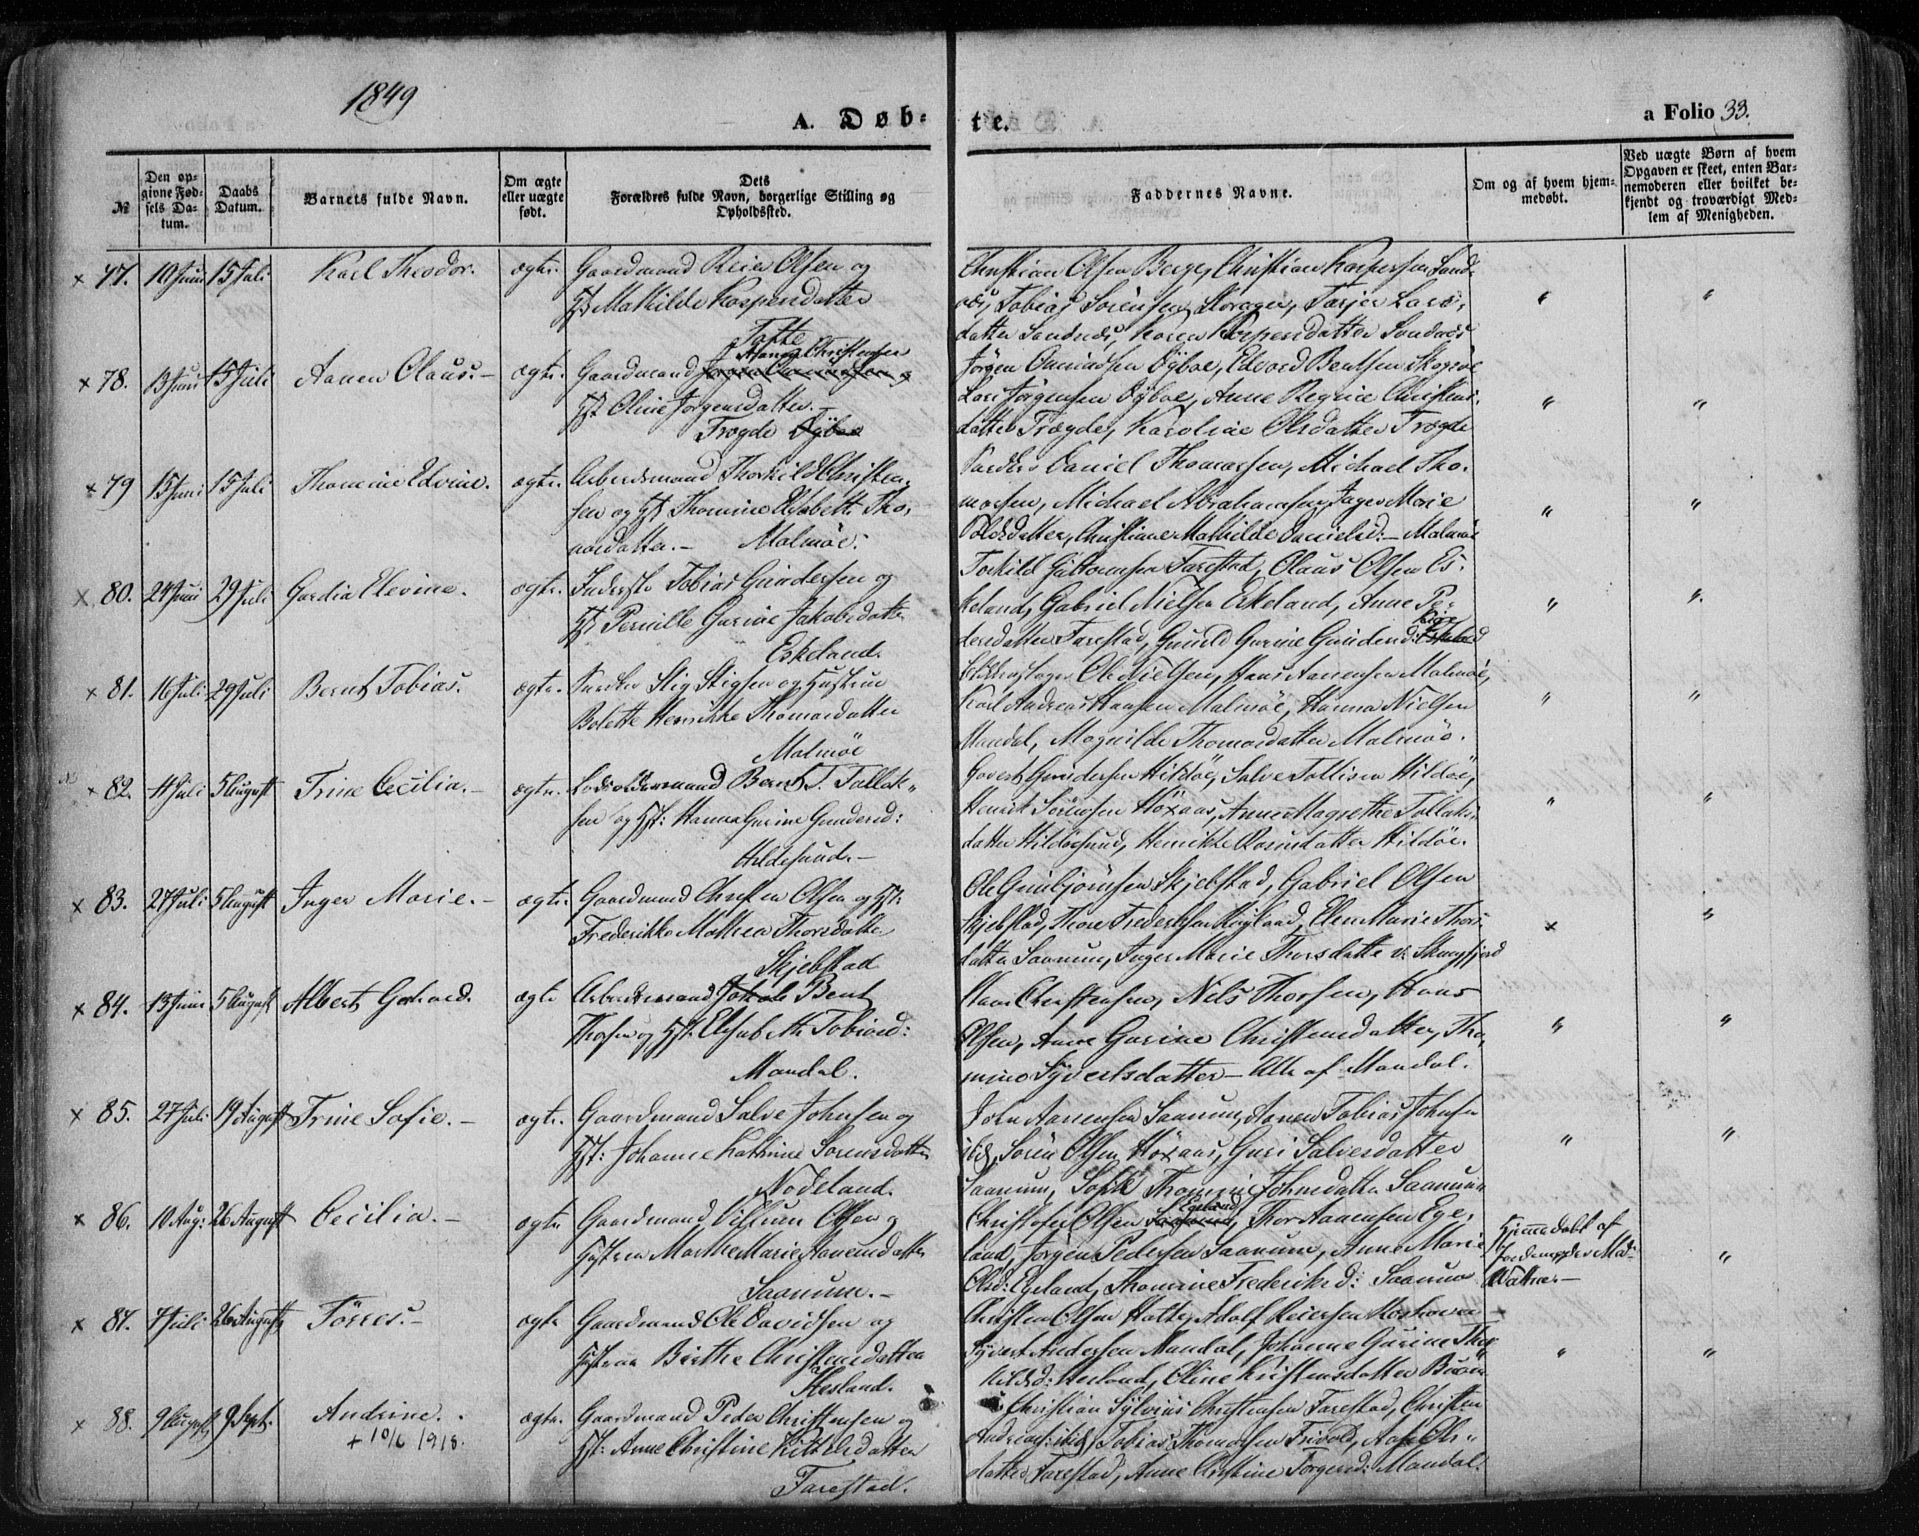 1849
A. Døb-
te.
a Folio 33.
№
Den op-
givne Fød-
sels Da-
tum.
Daabs
Datum.
Barnets fulde Navn.
Om ægte
eller uægte
født.
Dets
Forældres fulde Navn, borgerlige Stilling og
Opholdssted.
Faddernes Navne.
Om og af hvem hjem-
medøbt.
Ved uægte Børn af hvem
Opgaven er skeet, enten Bar-
nemoderen eller hvilket be-
kjendt og troværdigt Med-
lem af Menigheden.
× 77. 10 Juni 15 Juli Karl Theodor. ægte. Gaardmand Reier Olsen og
Hst Mathilde Kaspersdatter
Tofte
Christian Olsen Berge, Christian Kaspersen Sand-
næs, Tobias Sörensen Skrager, Tarjer Lars-
datter Sandnæs, Karen Kaspersdatter Sandnæs
× 78. 13 Juni 15 Juli Aanen Olaus. – ægte. Gaardmand Aanen Christensen
Hst Oline Jörgensdatter.
Trægde Dÿboe
Jörgen Aanensen Dÿboe, Edvard Bentsen Skogsøe
Lars Jörgensen Dÿboe, Anne Regine Christens-
datter Trægde, Karoline Olsdatter Trægde
× 79 15 Juni 15 Juli Thomine Edvine. ægte. Arbeidsmand Thorkild Christen-
sen og Hst Thomine Elisabeth Tho-
masdatter. – Malmöe.
Daniel Thomassen, Michael Tho-
massen, Michael Abrahamsen, Inger Marie
Christiane Mathilde Danielsd: – Malmöe
× 80. 24 Juni 29 Juli Gurdia Elevine. ægte. Inderste Tobias Gundersen og
Hst Pernille Gurine Jakobsdatter
Eskeland.
Torkild Guttormsen Farestad, Olaus Olsen Es-
keland, Gabriel Nielsen Eskeland, Anne Pe-
dersdatter Farestad, Gunild Gurine Gundersd:
× 81. 16 Juli 29 Juli Bernt Tobias. ægte. Stig Stigsen og Hustrue
Bolette Henrikke Thomasdatter
Malmöe
Ole Nielsen, Hans Aanensen Malmöe,
Karl Andreas Hansen Malmöe, Hanna Nielsen
Mandal, Magnilde Thomasdatter Malmöe.
× 82. 4 Juli 5 August Trine Cecilia. – ægte. Lodsoldermand Bernt T. Tallak-
sen og Hst: Hanna Gurine Gundersd:
Hildesund. –
Govert Gundersen Hildöe, Salve Tollisen Hildöe,
Henrik Sörensen Höxaas, Anne Magrethe Tallaks-
datter Hildösund, Henrikke Rasmusdatter Hildöe.
× 83. 27 Juli 5 August Inger Marie. – ægte. Gaardmand Christen Olsen og Hst:
Frederikke Mathea Thorsdatter
Skjebstad
Ole Gunbjörnsen Skjebstad, Gabriel Olsen
Skjebstad, Thore Frederiksen Röigland, Ellen Marie Thors-
datter Saanum, Inger Marie Thorsdatter v: Skogsfjord
× 84. 13 Juni 5 August Albert Gerhard. ægte Arbeidsmand Jakob Bent
Thorsen og Hst: Elisabeth Tobiasd:
Mandal.
Christensen, Nils Thorsen, Hans
Olsen, Anne Gurine Christensdatter, Tho-
mine Sÿvertsdatter – Alle af Mandal.
× 85. 27 Juli 19 August Trine Sofie. – ægte. Gaardmand Salve Johnsen og
Hst: Johanne Kathrine Sörensdatter
Nodeland.
John Aanensen Saanum, Aanen Tobias Johnsen
ibid, Sören Olsen Höxaas, Guri Salvesdatter
Saanum, Sofie Thomine Johnsdatter Saanum
× 86. 10 Aug: 26 August Cecilia. – ægte Gaardmand Villum Olsen og
Hustrue Marthe Marie Aanensdatter
Saanum. –
Christofer Olsen Egeland, Thor Aanensen Ege-
land, Jörgen Pedersen Saanum, Anne Marie
Olsd: Egeland, Thomine Frederiksd: Saanum
Hjemmedøbt af
Jordemoder Mad:
Wattne. –
× 87. 4 Juli 26 August Törres. – ægte Gaardmand Ole Davidsen og
Hustrue Birthe Christensdatter
Hesland.
Christen Olsen Hatte, Adolf Reiersen
Sÿvert Andersen Mandal, Johanne Gurine Thor-
kildsd: Hesland, Eline Kristensdatter
× 88. 9 August 9 Sept. Andrine.
+ 10/6 1918.
ægte. Gaardmand Peder Christensen og
Hst: Anne Christine Kittelsdatter
Farestad.
Christian Sÿlvius Christensen Farestad, Christen
Andreas ibid, Tobias Thomassen Frivold, Aase Ols-
datter Farestad, Anne Christine Torgersd: Mandal.